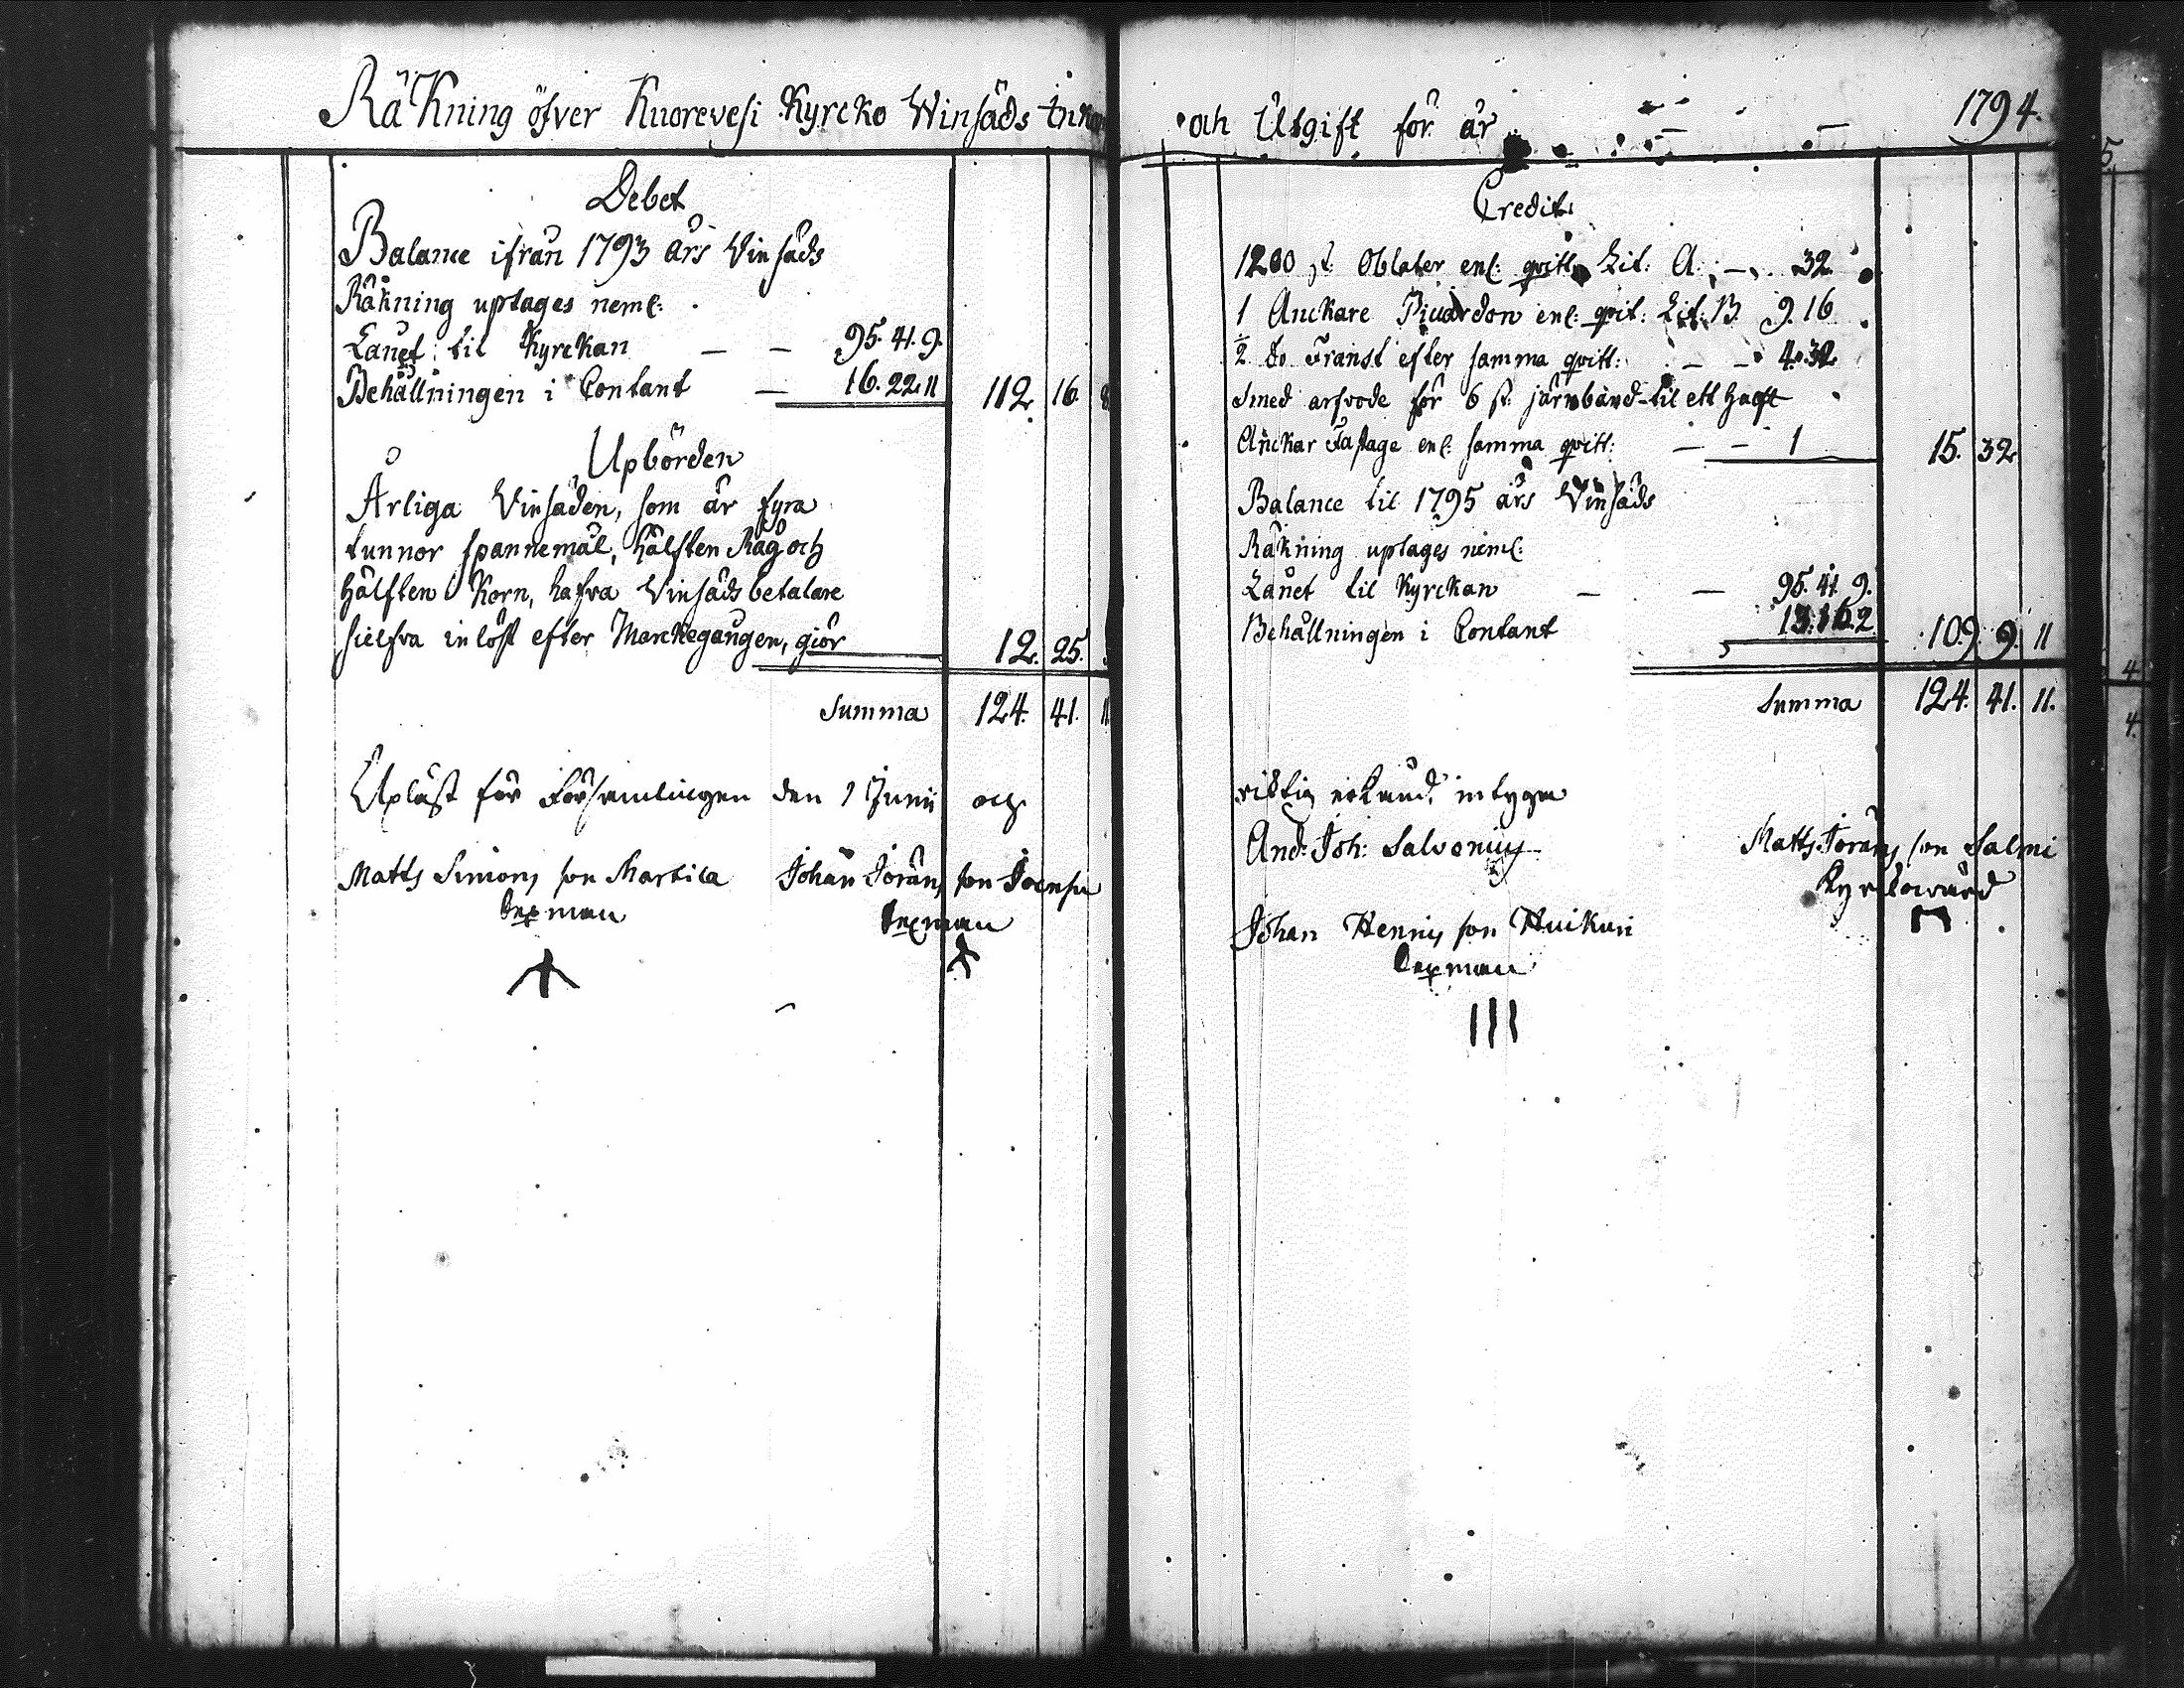 Räkning öfver Kuorevesi Kyrcko Winsäds Inkom
Debet
Balance ifrån 1793 års Vinsäds
Räkning uptages neml:
Lånet til Kyrckan — — 95. 41. 9.
Behållningen i Contant — 16. 22. 11 112. 16. 8
Upbörden
Årliga Vinsäden, som är fyra
tunnor spannemål, hälften Råg och
hälften Korn, hafva Vinsäds betalare
sielfva inlöst efter Marckegången, giör 12. 25.
Summa 124. 41. 11
Upläst för Församlingen den 1 Junii och
Matts Simons son Martila Johan Jörans son
Sexman Sexman
och Utgift för år — — 1794.
Credit
1200 st: Oblater enl: qvitt: Lit: A: — 32.
1 Anckare Picardon enl: qvit: Lit: B 9. 16
½ do Franskt efter samma qvitt: — 4. 32
Smed arfvode för 6 st: järnband til ett halft
Anckar Fastage enl: samma qvitt: — — 1 15. 32
Balance til 1795 års Vinsäds
Räkning uptages neml:
Lånet til Kyrckan — — 95. 41. 9.
Behållningen i Contant 13. 16. 2 109. 9. 11
Summa 124. 41. 11.
riktig erkänd, intyga
And: Joh: Salvenius Matts Jörans son Salmi
Kyrkowärd
Johan Hennis son Huikuri
Sexman
III
5.
4
4.